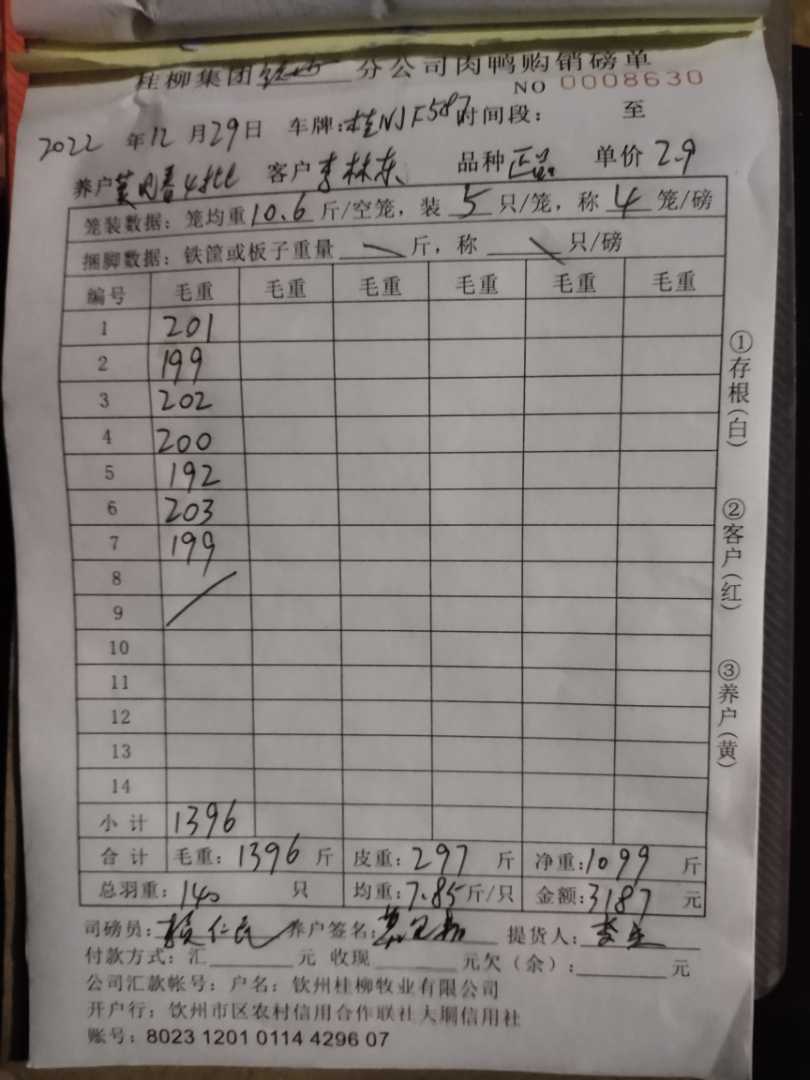 桂柳集团 分公司肉鸭购销磅单
NO 0008630
2022 年 12 月 29 日 车牌:桂NJF587 时间段: 至
养户 4批 客户 李林东 品种 正品 单价 2.9
笼装数据: 笼均重 10.6 斤/空笼, 装 5 只/笼, 称 4 笼/磅
捆脚数据: 铁筐或板子重量 斤, 称 只/磅
编号 毛重 毛重 毛重 毛重 毛重 毛重
1 201
2 199
3 202
4 200
5 192
6 203
7 199
8
9
10
11
12
13
14
小 计 1396
合 计 毛重: 1396 斤 皮重: 297 斤 净重: 1099 斤
总羽重: 140 只 均重: 7.85 斤/只 金额: 3187 元
司磅员: 仁民 养户签名: 提货人: 李
付款方式: 汇 元 收现 元欠(余): 元
公司汇款帐号: 户名: 钦州桂柳牧业有限公司
开户行: 钦州市区农村信用合作联社大垌信用社
账号: 8023 1201 0114 4296 07
①存根(白)
②客户(红)
③养户(黄)